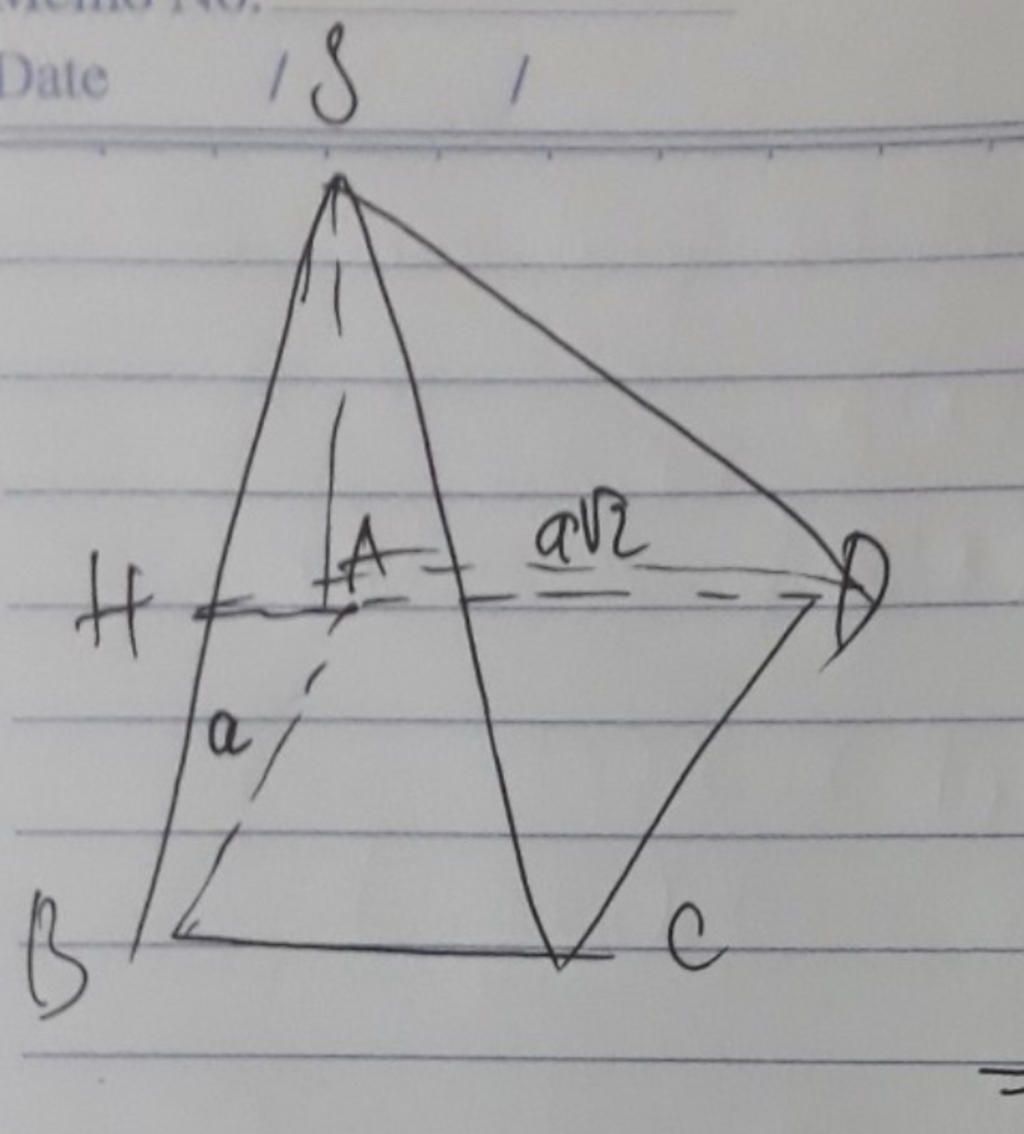 Memo No.
Date / /
S
a√2
A
H
D
a
B
C
=